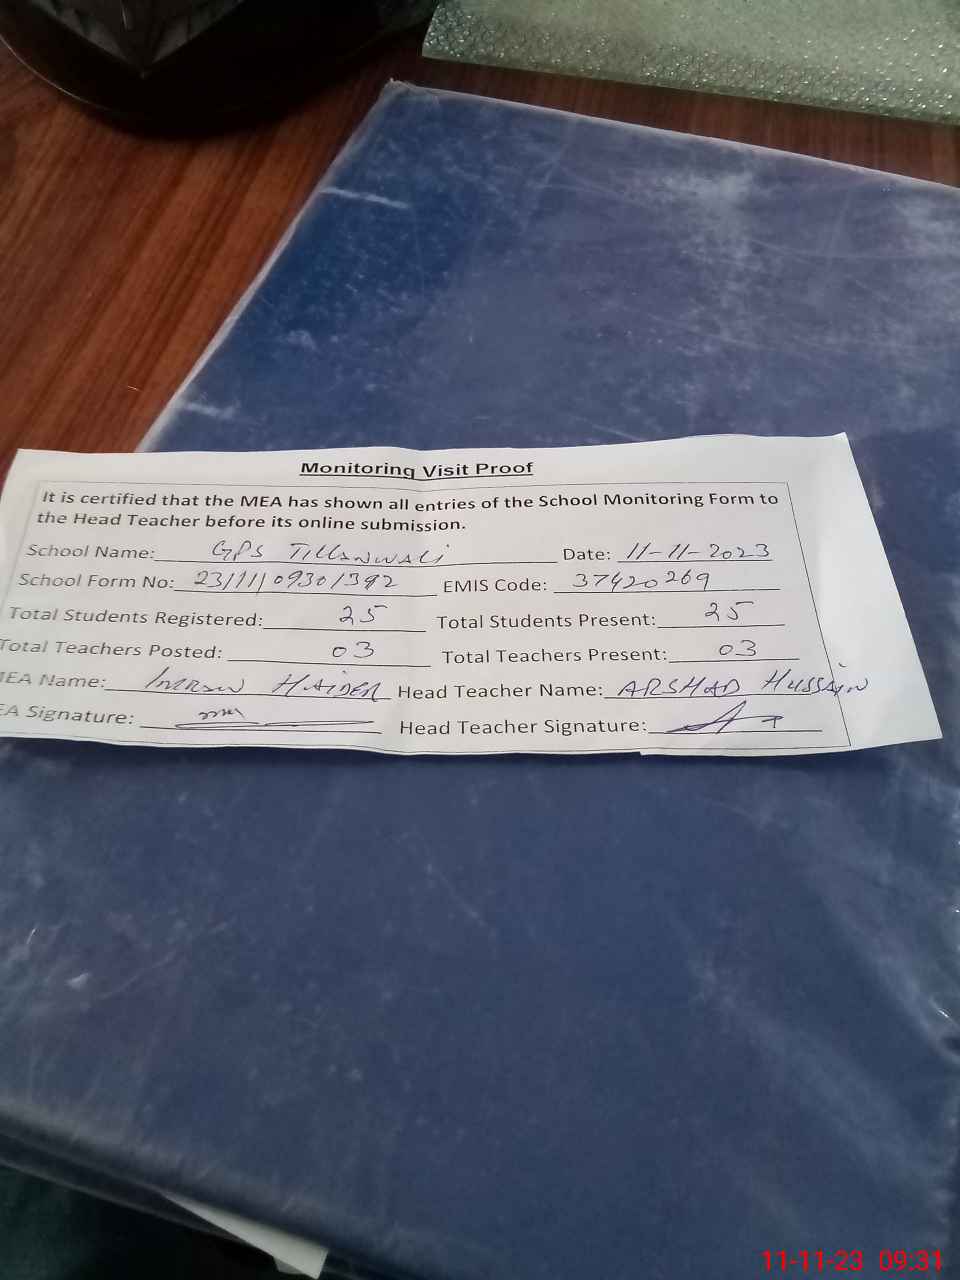 Monitoring Visit Proof
It is certified that the MEA has shown all entries of the School Monitoring Form to
the Head Teacher before its online submission.
School Name: GPS Tillanwali Date: 11-11-2023
School Form No: 23111109301392 EMIS Code: 37420269
Total Students Registered: 25 Total Students Present: 25
Total Teachers Posted: 03 Total Teachers Present: 03
MEA Name: Imran HAIDER Head Teacher Name: ARSHAD HUSSAIN
EA Signature: Head Teacher Signature:
11-11-23 09:31